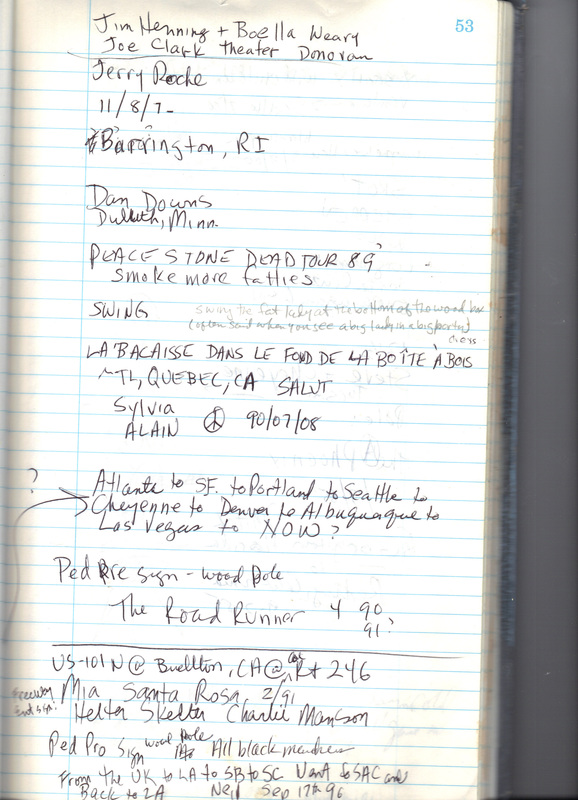 53
Jim Henning + Boella Weary
Joe Clark Theater Donovan
Jerry Roche
11/8/7-
Barrington, RI
Dan Downs
Duluth, Minn.
PLACE STONE DEAD TOUR 89'
Smoke more fatties
SWING swing the fat lady at the bottom of the wood box
(often said when you see a big lady in a big party)
dress
LA BACAISSE DANS LE FOND DE LA BOÎTE À BOIS
MTL, QUEBEC, CA SALUT
Sylvia
ALAIN 90/07/08
? Atlanta to SF. to Portland to Seattle to
Cheyenne to Denver to Albuquaque to
Las Vegas to NOW?
Ped sign - wood pole
The Road Runner 4 90
91?
US-101 N @ Buellton, CA @ Rt 246
Mia Santa Rosa 2/91
Freeway
Helter Skelter Charlie Manson
Ped Pro Sign wood pole All black
From the UK to LA to SB to SC Want to SAC and
Back to LA Neil Sep 17th 96